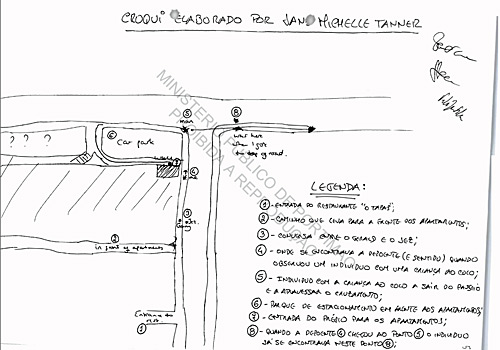 CROQUI ELABORADO POR JANE MICHELLE TANNER
MINISTÉRIO PÚBLICO DE PORTIMÃO
PROIBIDA A REPRODUÇÃO
? ? ?
⑥ Car park
⑤
man
⑧
was here
when I got
to top of road.
⑦
④
③
②
in front of apartments
Entrance to
①
LEGENDA:
① - ENTRADA DO RESTAURANTE "O TAPAS";
② - CAMINHO QUE LEVA PARA A FRENTE DOS APARTAMENTOS;
③ - CONVERSA ENTRE O GERALD E O JEZ;
④ - ONDE SE ENCONTRAVA A DEPOENTE (E SENTIDO) QUANDO
OBSERVOU UM INDIVIDUO COM UMA CRIANÇA AO COLO;
⑤ - INDIVIDUO COM A CRIANÇA AO COLO A SAIR DO PASSEIO
E A ATRAVESSAR O CRUZAMENTO;
⑥ - PARQUE DE ESTACIONAMENTO EM FRENTE AOS APARTAMENTOS;
⑦ - ENTRADA DO PÁTIO PARA OS APARTAMENTOS;
⑧ - QUANDO A DEPOENTE ④ CHEGOU AO PONTO ⑤ O INDIVIDUO
JÁ SE ENCONTRAVA NESTE PONTO ⑧;